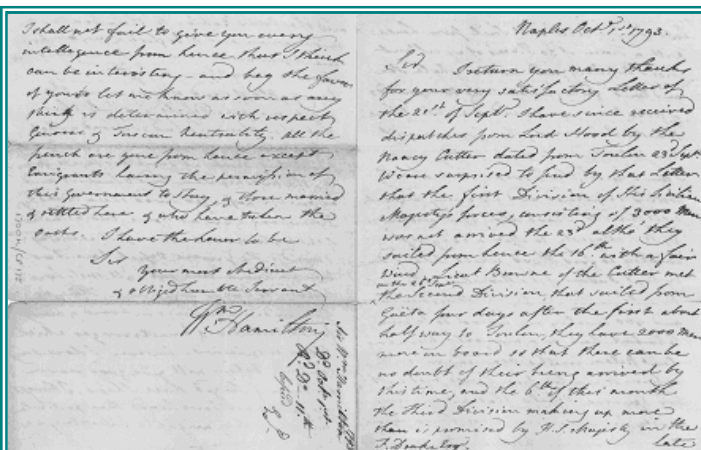 I shall not fail to give you every
intelligence from hence that I think
can be interesting - and beg the favor
of you to let me know as soon as any
thing is determined with respect
Genoese & Tuscan neutrality. all the
french are gone from hence except
Emigrants having the permission of
this Government to stay, & those married
& settled here & who have taken the
oaths. I have the honor to be
Sir
Your most obedient
& obliged humble Servant
Wm Hamilton
Sir Wm Hamilton
Do Octr 1st
Rd Do 11th
Naples Octr 1st 1793.
Sir I return you many thanks
for your very satisfactory Letter of
the 21st of Septr. I have since received
dispatches from Lord Hood by the
Nancy Cutter dated from Toulon 23d Septr
We are surprised to find by that Letter
that the first Division of His Sicilian
Majesty's forces, consisting of 3000 Men
was not arrived the 23d altho' they
sailed from hence the 16th with a fair
wind. Lieut Browne of the Cutter met
on the
the Second Division, that sailed from
Gaeta four days after the first about
half way to Toulon, they have 2000 Men
more on board so that there can be
no doubt of their being arrived by
this time, and the 6th of this month
the third Division making up more
than is promised by H. S. Majesty in the
F. Drake Esqr. late